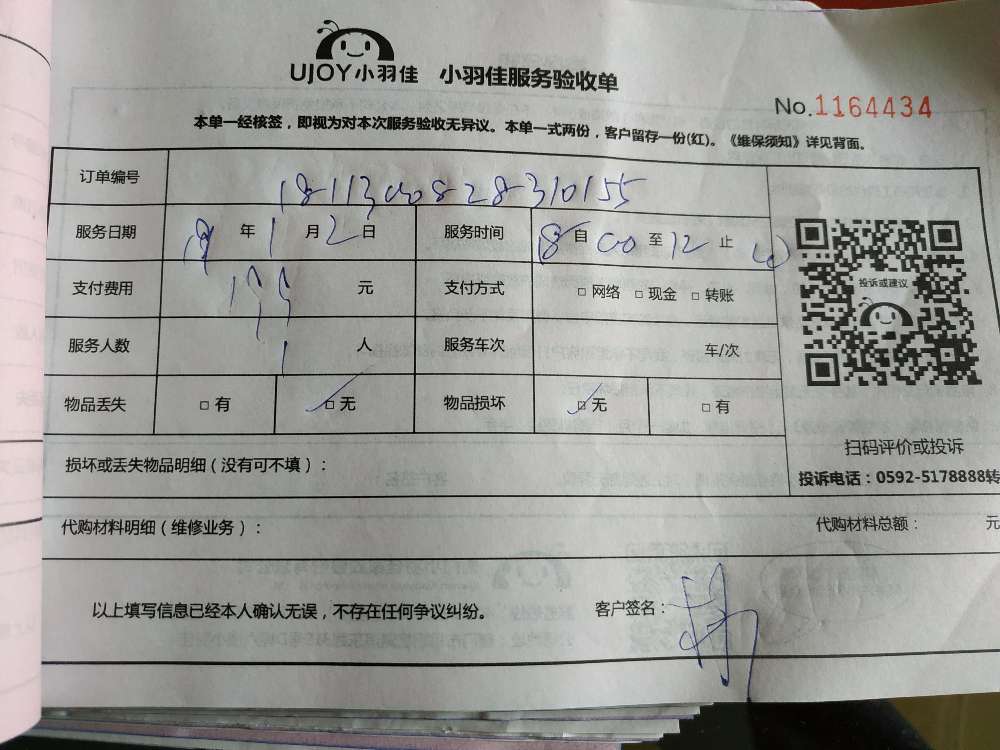 UJOY小羽佳 小羽佳服务验收单
No.1164434
本单一经核签，即视为对本次服务验收无异议。本单一式两份，客户留存一份(红)。《维保须知》详见背面。
订单编号
服务日期 年 1 月 2 日 服务时间 8 自 00 至 12 止
支付费用 元 支付方式 □ 网络 □ 现金 □ 转账
投诉或建议
服务人数 1 人 服务车次 车/次
物品丢失 □ 有 □ 无 物品损坏 □ 无 □ 有
扫码评价或投诉
损坏或丢失物品明细（没有可不填）：
投诉电话：0592-5178888转
代购材料明细（维修业务）： 代购材料总额： 元
以上填写信息已经本人确认无误，不存在任何争议纠纷。 客户签名：